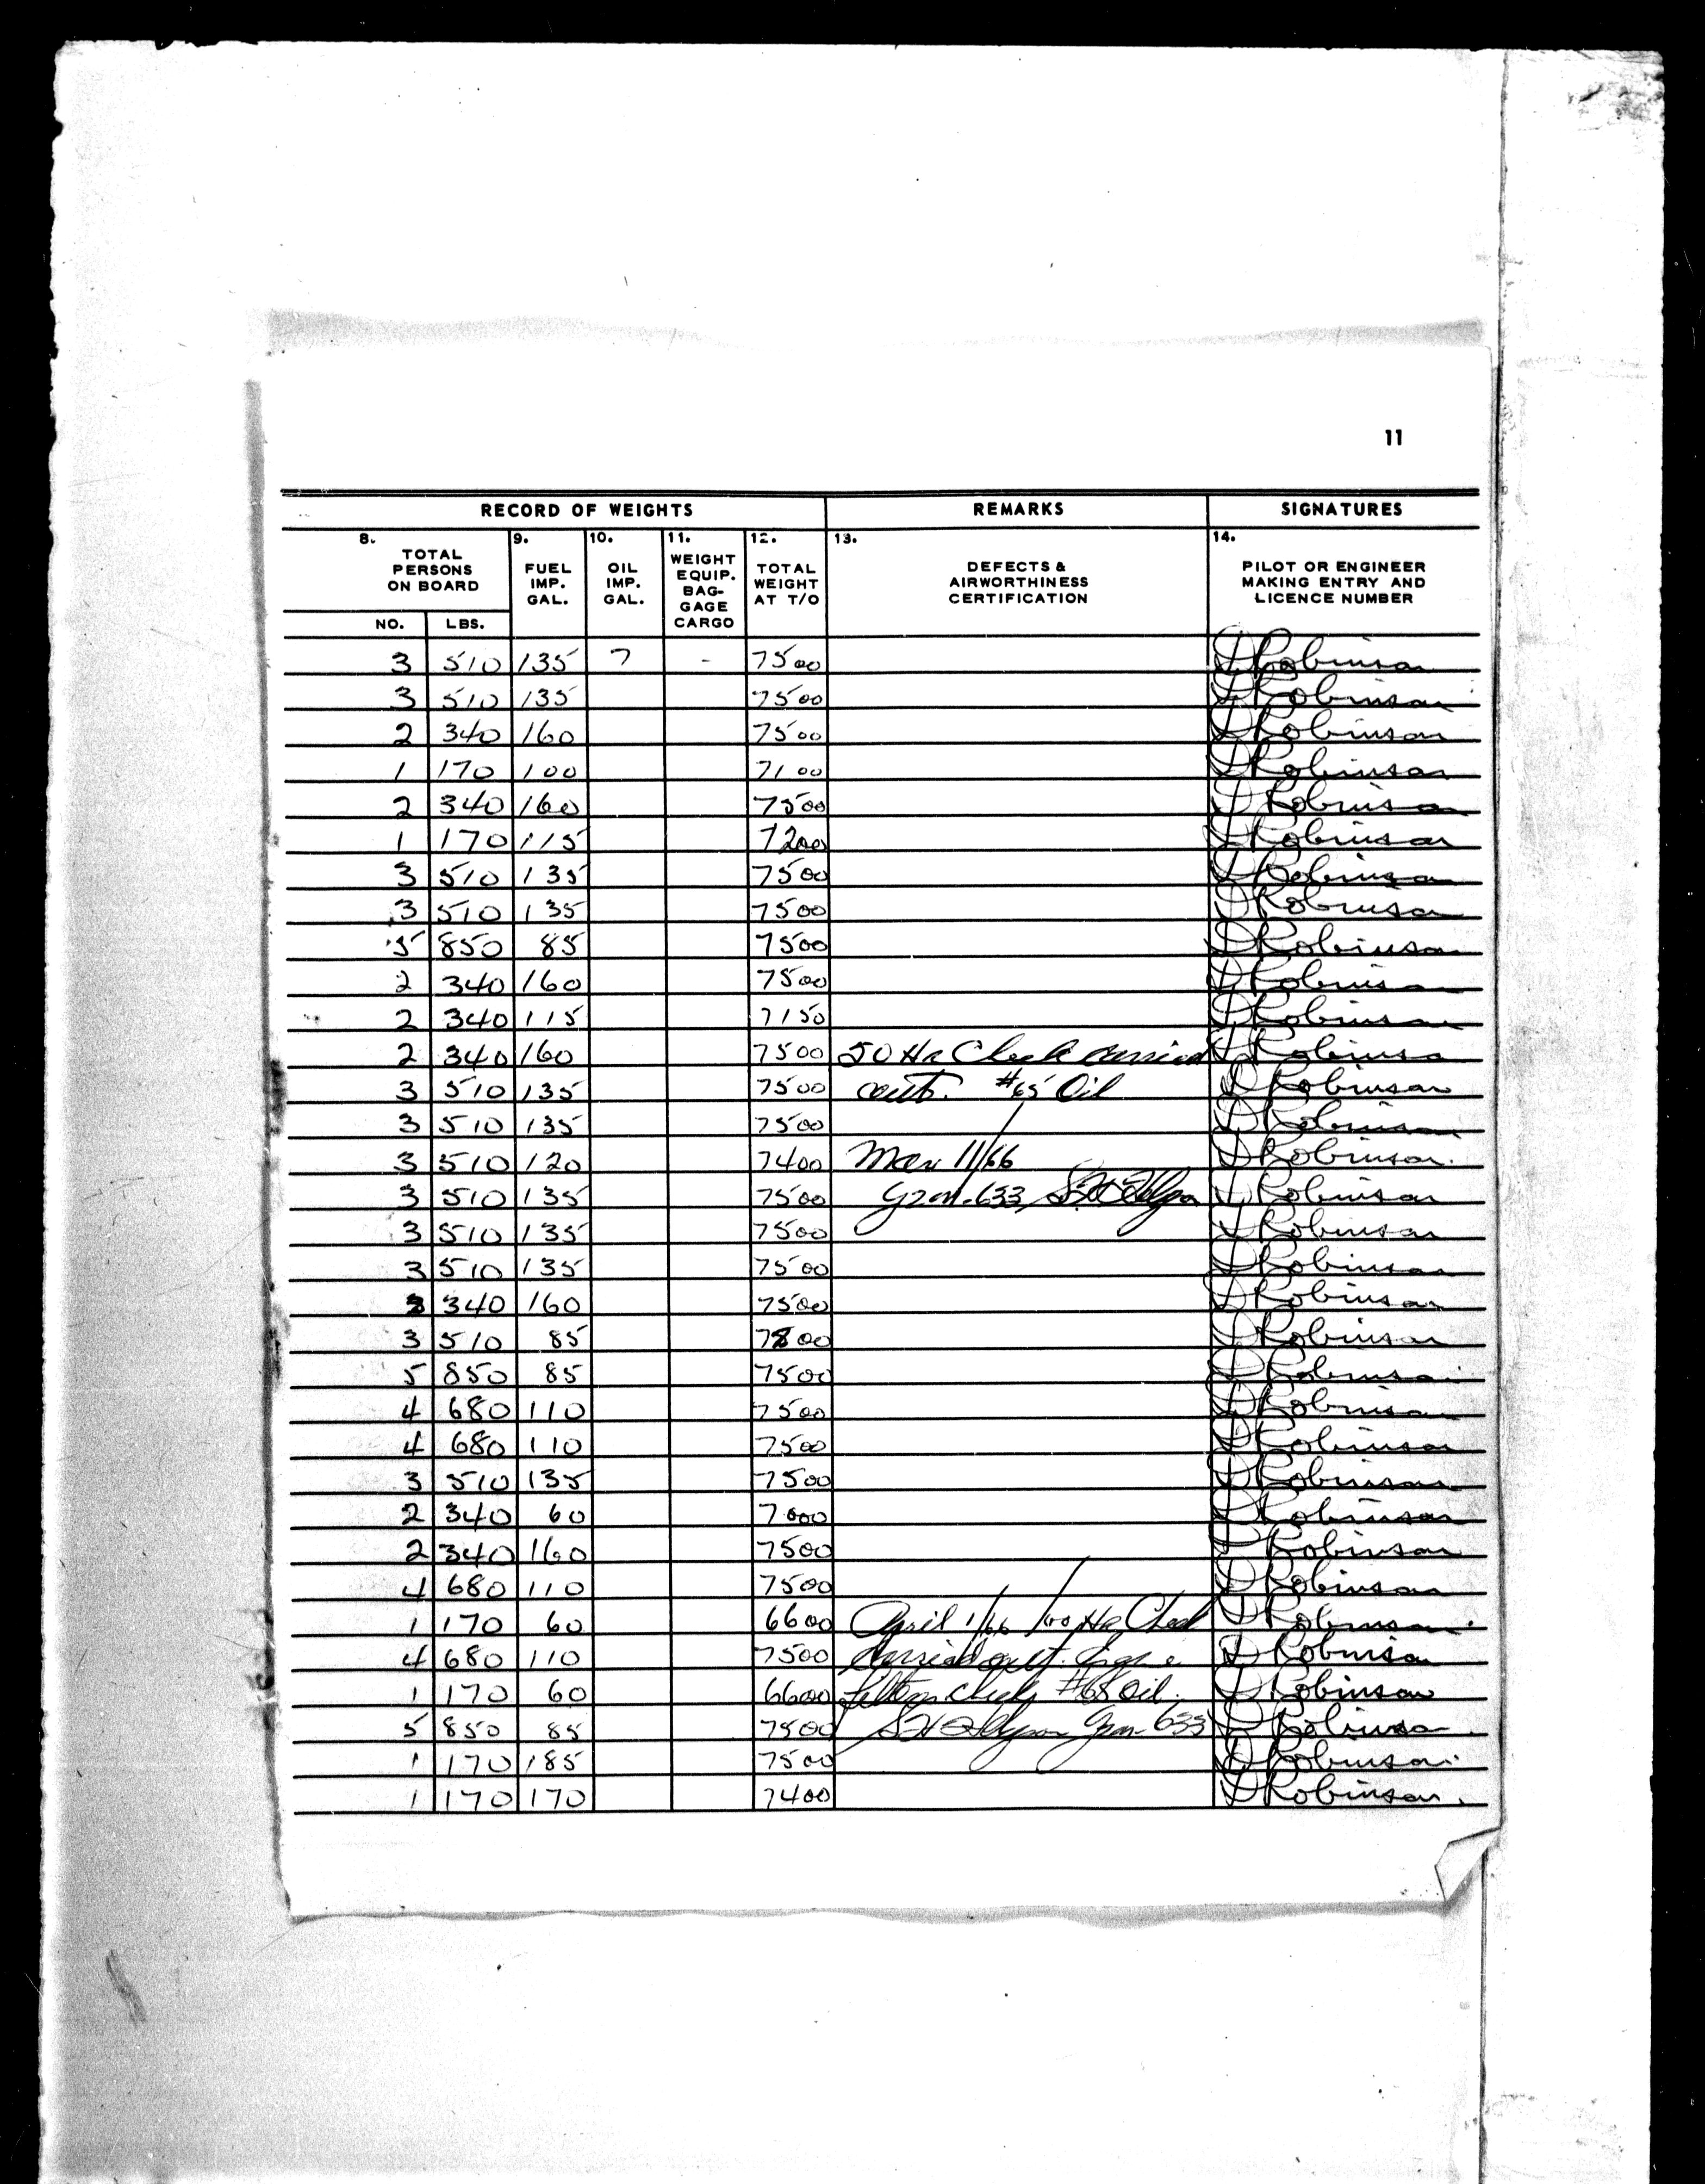 11
RECORD OF WEIGHTS REMARKS SIGNATURES
8. TOTAL PERSONS ON BOARD 9. FUEL IMP. GAL. 10. OIL IMP. GAL. 11. WEIGHT EQUIP. BAG- GAGE CARGO 12. TOTAL WEIGHT AT T/O 13. DEFECTS & AIRWORTHINESS CERTIFICATION 14. PILOT OR ENGINEER MAKING ENTRY AND LICENCE NUMBER
NO. LBS.
3 510 135 7 - 7500 D Robinson
3 510 135 7500 D Robinson
2 340 160 7500 D Robinson
1 170 100 7100 D Robinson
2 340 160 7500 D Robinson
1 170 115 7200 D Robinson
3 510 135 7500 D Robinson
3 510 135 7500 D Robinson
5 850 85 7500 D Robinson
2 340 160 7500 D Robinson
2 340 115 7150 D Robinson
2 340 160 7500 50 Hr Check carried D Robinson
3 510 135 7500 out. #65 Oil D Robinson
3 510 135 7500 D Robinson
3 510 120 7400 Mar 11/66 D Robinson
3 510 135 7500 633 D Robinson
3 510 135 7500 D Robinson
3 510 135 7500 D Robinson
340 160 7500 D Robinson
3 510 85 D Robinson
5 850 85 7500 D Robinson
4 680 110 7500 D Robinson
4 680 110 7500 D Robinson
3 510 135 7500 D Robinson
2 340 60 7000 D Robinson
2 340 160 7500 D Robinson
4 680 110 7500 D Robinson
1 170 60 6600 April 1/66 100 Hr Check D Robinson
4 680 110 7500 Carried out. D Robinson
1 170 60 6600 check #65 Oil. D Robinson
5 850 85 7500 633 D Robinson
1 170 185 7500 D Robinson
1 170 170 7400 D Robinson